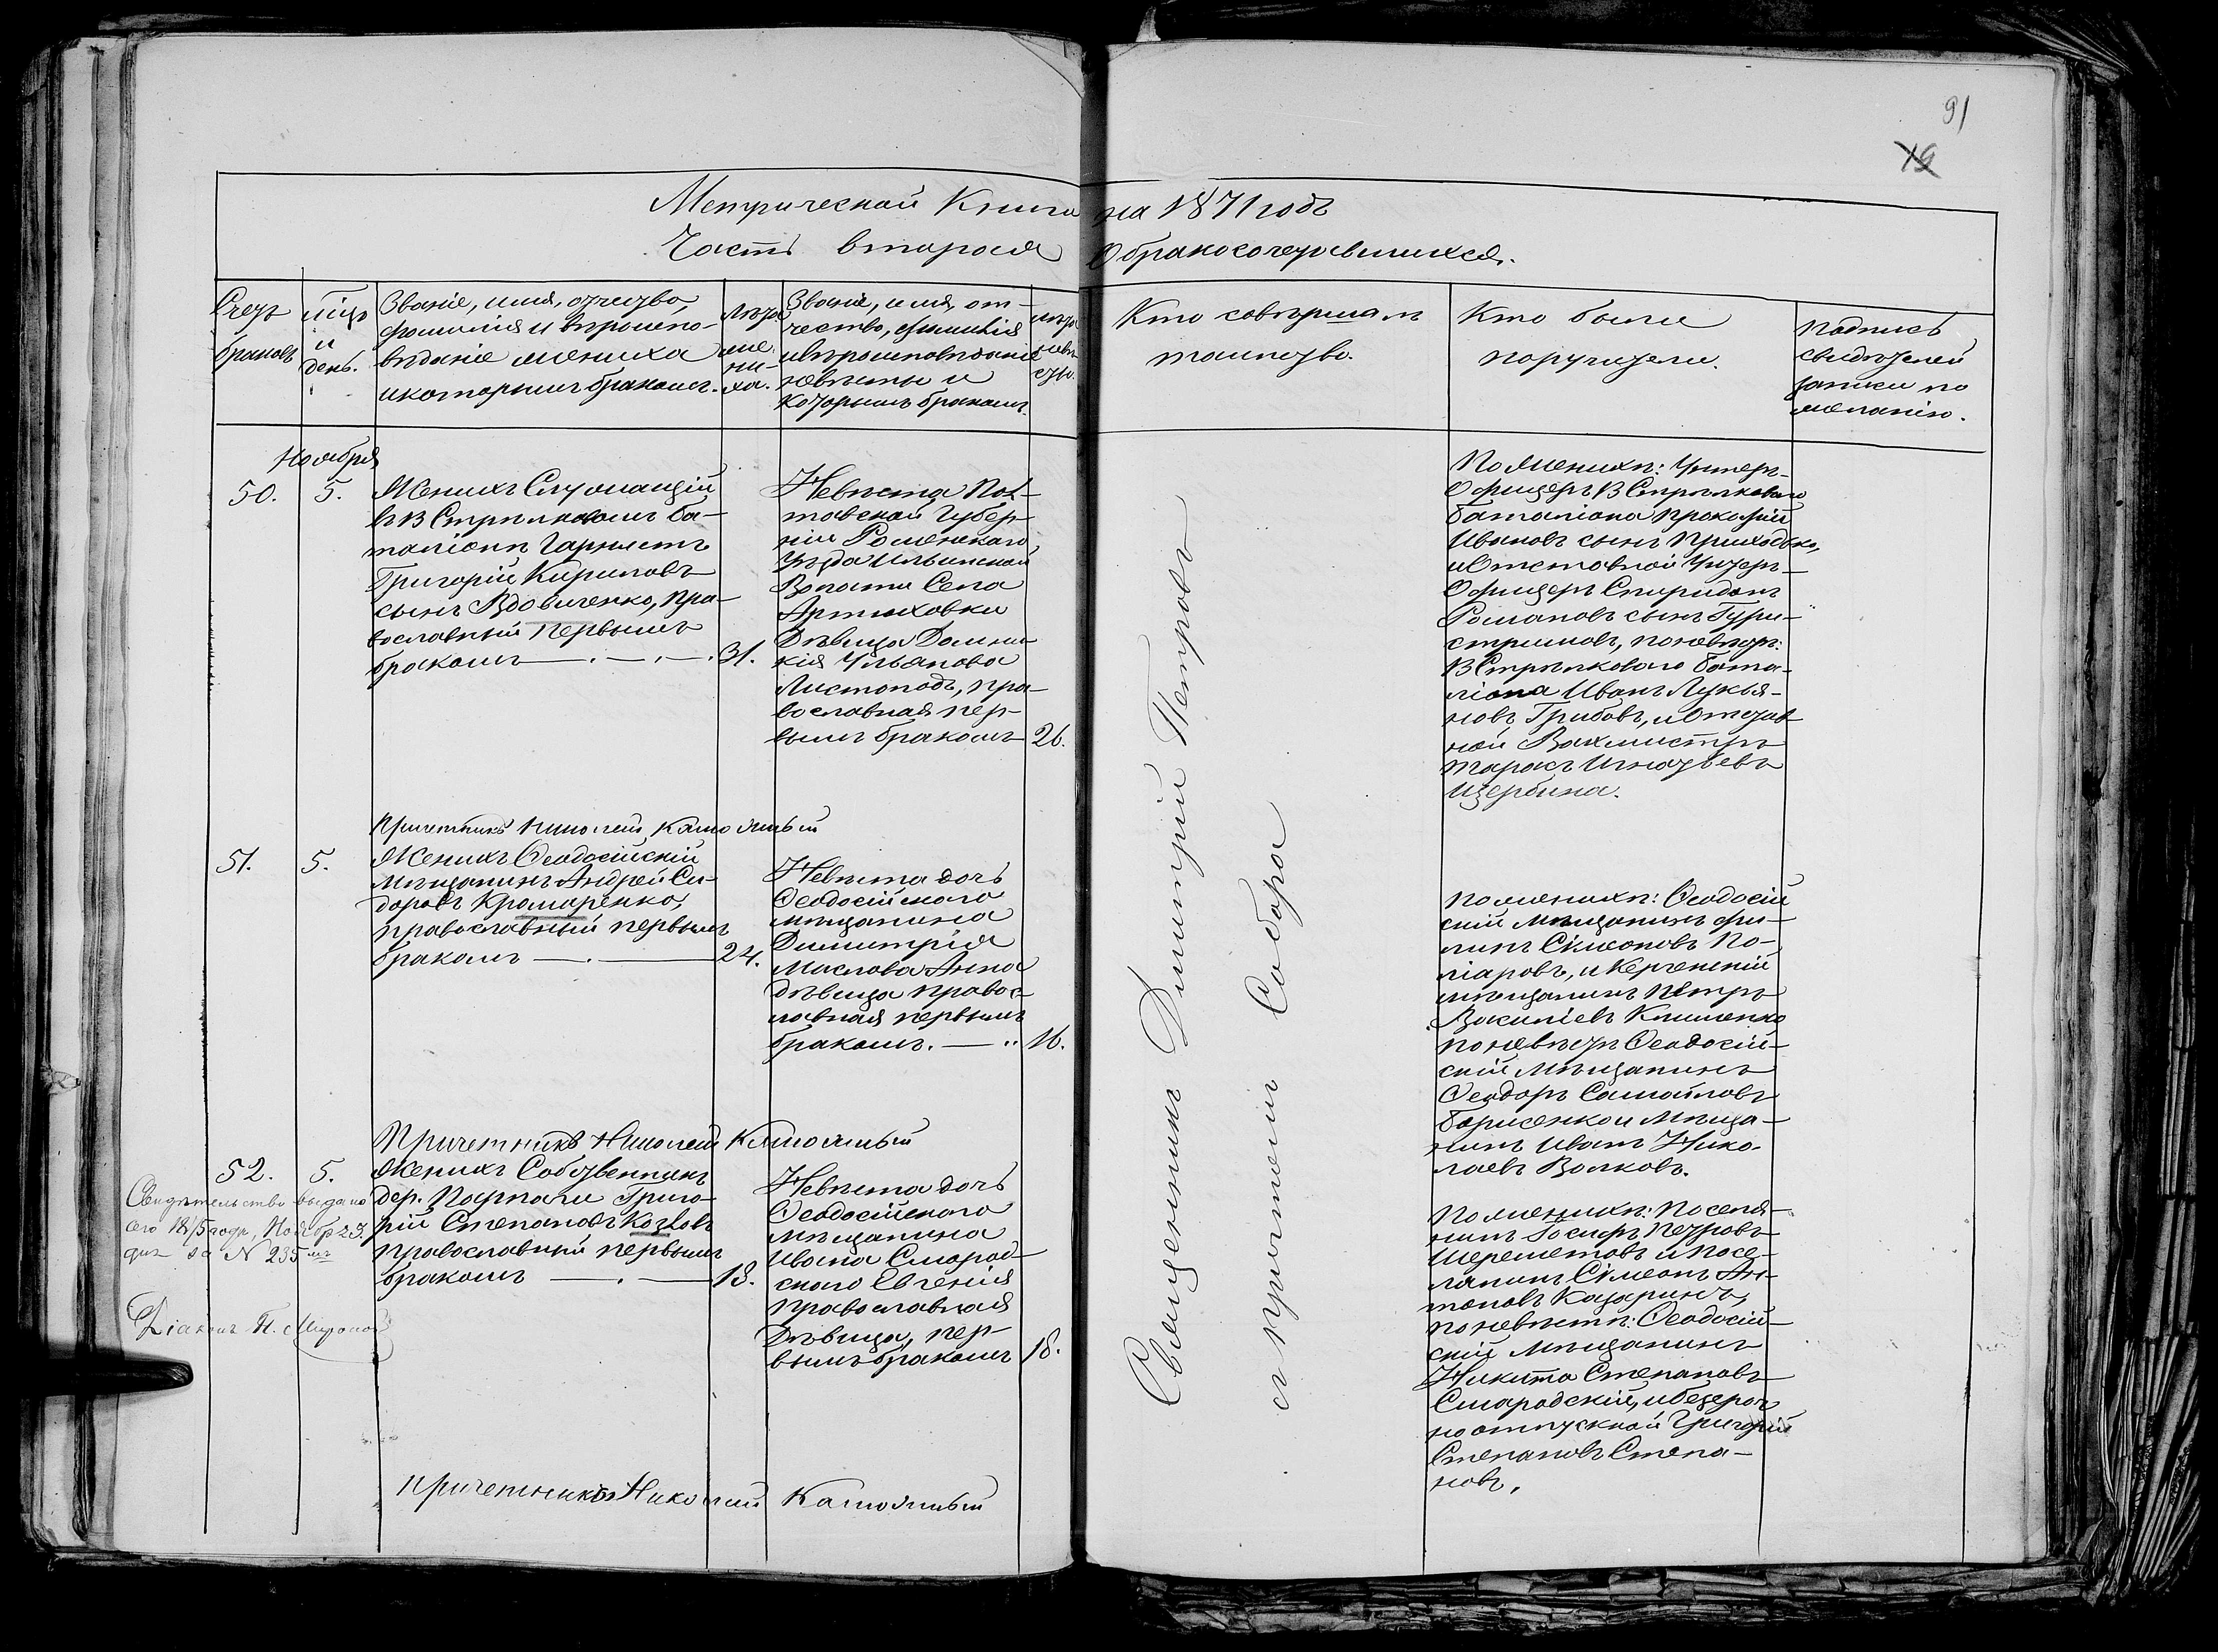 91
19
Метрической Книги на 1871 годъ
Часть вторая О бракосочетавшихся.
Счетъ браковъ
мцъ и день.
Званіе, имя, отчество,
фамилія и вѣроиспо-
вѣданіе жениха
и которымъ бракомъ.
Лѣта
же-
ни-
ха.
Званіе, имя, от-
чество, фамилія
и вѣроисповѣданіе
невѣсты и
которымъ бракомъ.
лѣта
невѣ
сты.
Кто совершалъ
таинство.
Кто были
поручители.
Подпись
свидѣтелей
записи по
желанію.
Ноября
50. 5.
Женихъ Служащій
въ В Стрѣлковомъ ба-
таліонѣ Горнистъ
Григорій Кириловъ
сынъ Вдовиченко, пра-
вославный первымъ
бракомъ 31.
Невѣста Пол-
тавской Губер-
ніи Роменскаго
уѣзда Ильинской
Волости Села
Артюховки
Дѣвица Домни-
кія Ульянова
Листопадъ, пра-
вославная пер-
вымъ бракомъ 26.
По женихѣ: Унтеръ-
Офицеръ В Стрѣлковаго
баталіона Прокофій
Ивановъ сынъ Приходько,
и Отставной Унтеръ-
Офицеръ Спиридонъ
Романовъ сынъ Гури-
стримовъ, по невѣстѣ:
В Стрѣлковаго бата-
ліона Иванъ Лукья-
новъ Грибовъ, и Отстав
ной Вахмистръ
Тарасъ Игнатьевъ
Щербина.
Причетникъ Николай
51. 5.
Женихъ Ѳеодосійскій
Мѣщанинъ Андрей Си-
доровъ Крамаренко,
православный первымъ
бракомъ 24.
Невѣста дочь
Ѳеодосійскаго
мѣщанина
Димитрія
Маслова Анна
дѣвица правос-
лавная первымъ
бракомъ. 16.
По женихѣ: Ѳеодосій
скій Мѣщанинъ Фи-
липъ Сімеоновъ По-
ліаровъ, и Керченскій
мѣщанинъ Петръ
Васильевъ Клименко
по невѣстѣ Ѳеодосій-
скій Мѣщанинъ
Ѳеодоръ Самайловъ
Борисенко и Мѣща-
нинъ Иванъ Нико-
лаевъ Волковъ.
Причетникъ Николай
52. 5.
Женихъ Собственникъ
дер. Парпачи Григо-
рій Степановъ Козловъ
православный первымъ
бракомъ 18.
Невѣста дочь
Ѳеодосійскаго
мѣщанина
Ивана Смарод-
скаго Евгенія
православная
Дѣвица, пер-
вымъ бракомъ 18.
По женихѣ: Поселя-
нинъ Іосифъ Петровъ
Шереметовъ и Посе-
лянинъ Сімеонъ Ан-
тоновъ Казаринъ,
по невѣстѣ: Ѳеодосій-
скій Мѣщанинъ
Никита Степановъ
Смародскій, и безсроч
ноотпускной Григорій
Степановъ Степа-
новъ,
Свидѣтельство выдано
сего 1875 года, Ноября 23
дня за N 235мъ
Діаконъ П. Миронов
Причетникъ Николай
Священникъ Димитрій Петровъ
съ причтомъ Собора